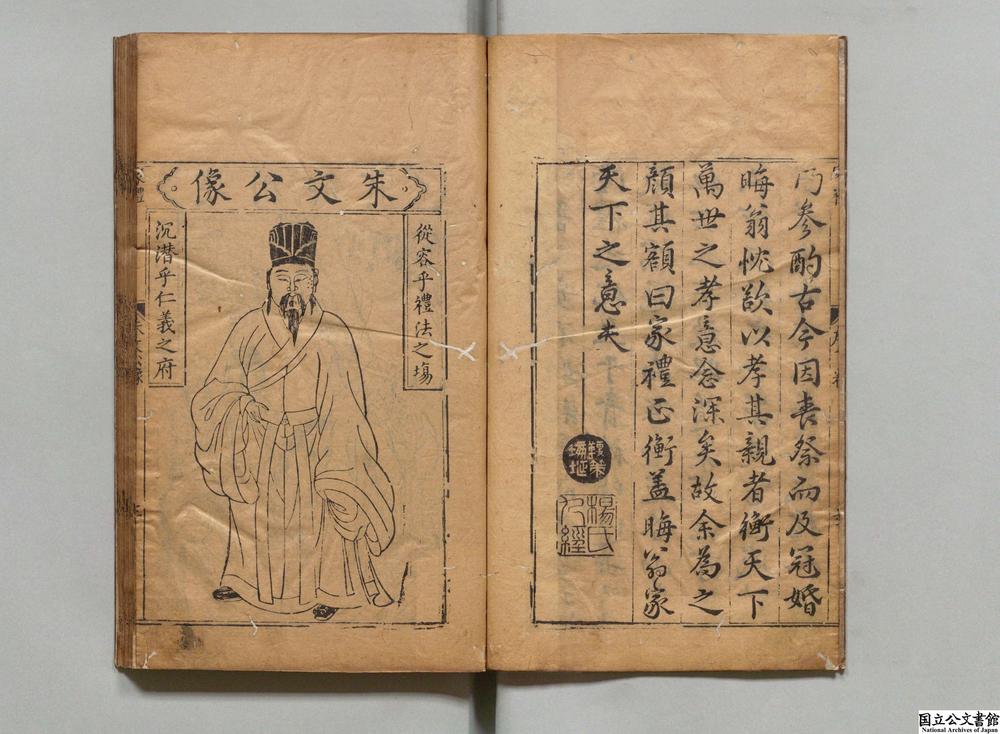 乃參酌古今因喪祭而及冠婚
晦翁忱欲以孝其親者衡天下
萬世之孝意念深矣故余為之
顔其額曰家禮正衡蓋晦翁家
天下之意夫
楊氏
九經
朱文公像
從容乎禮法之場
沉潜乎仁義之府
国立公文書館
National Archives of Japan